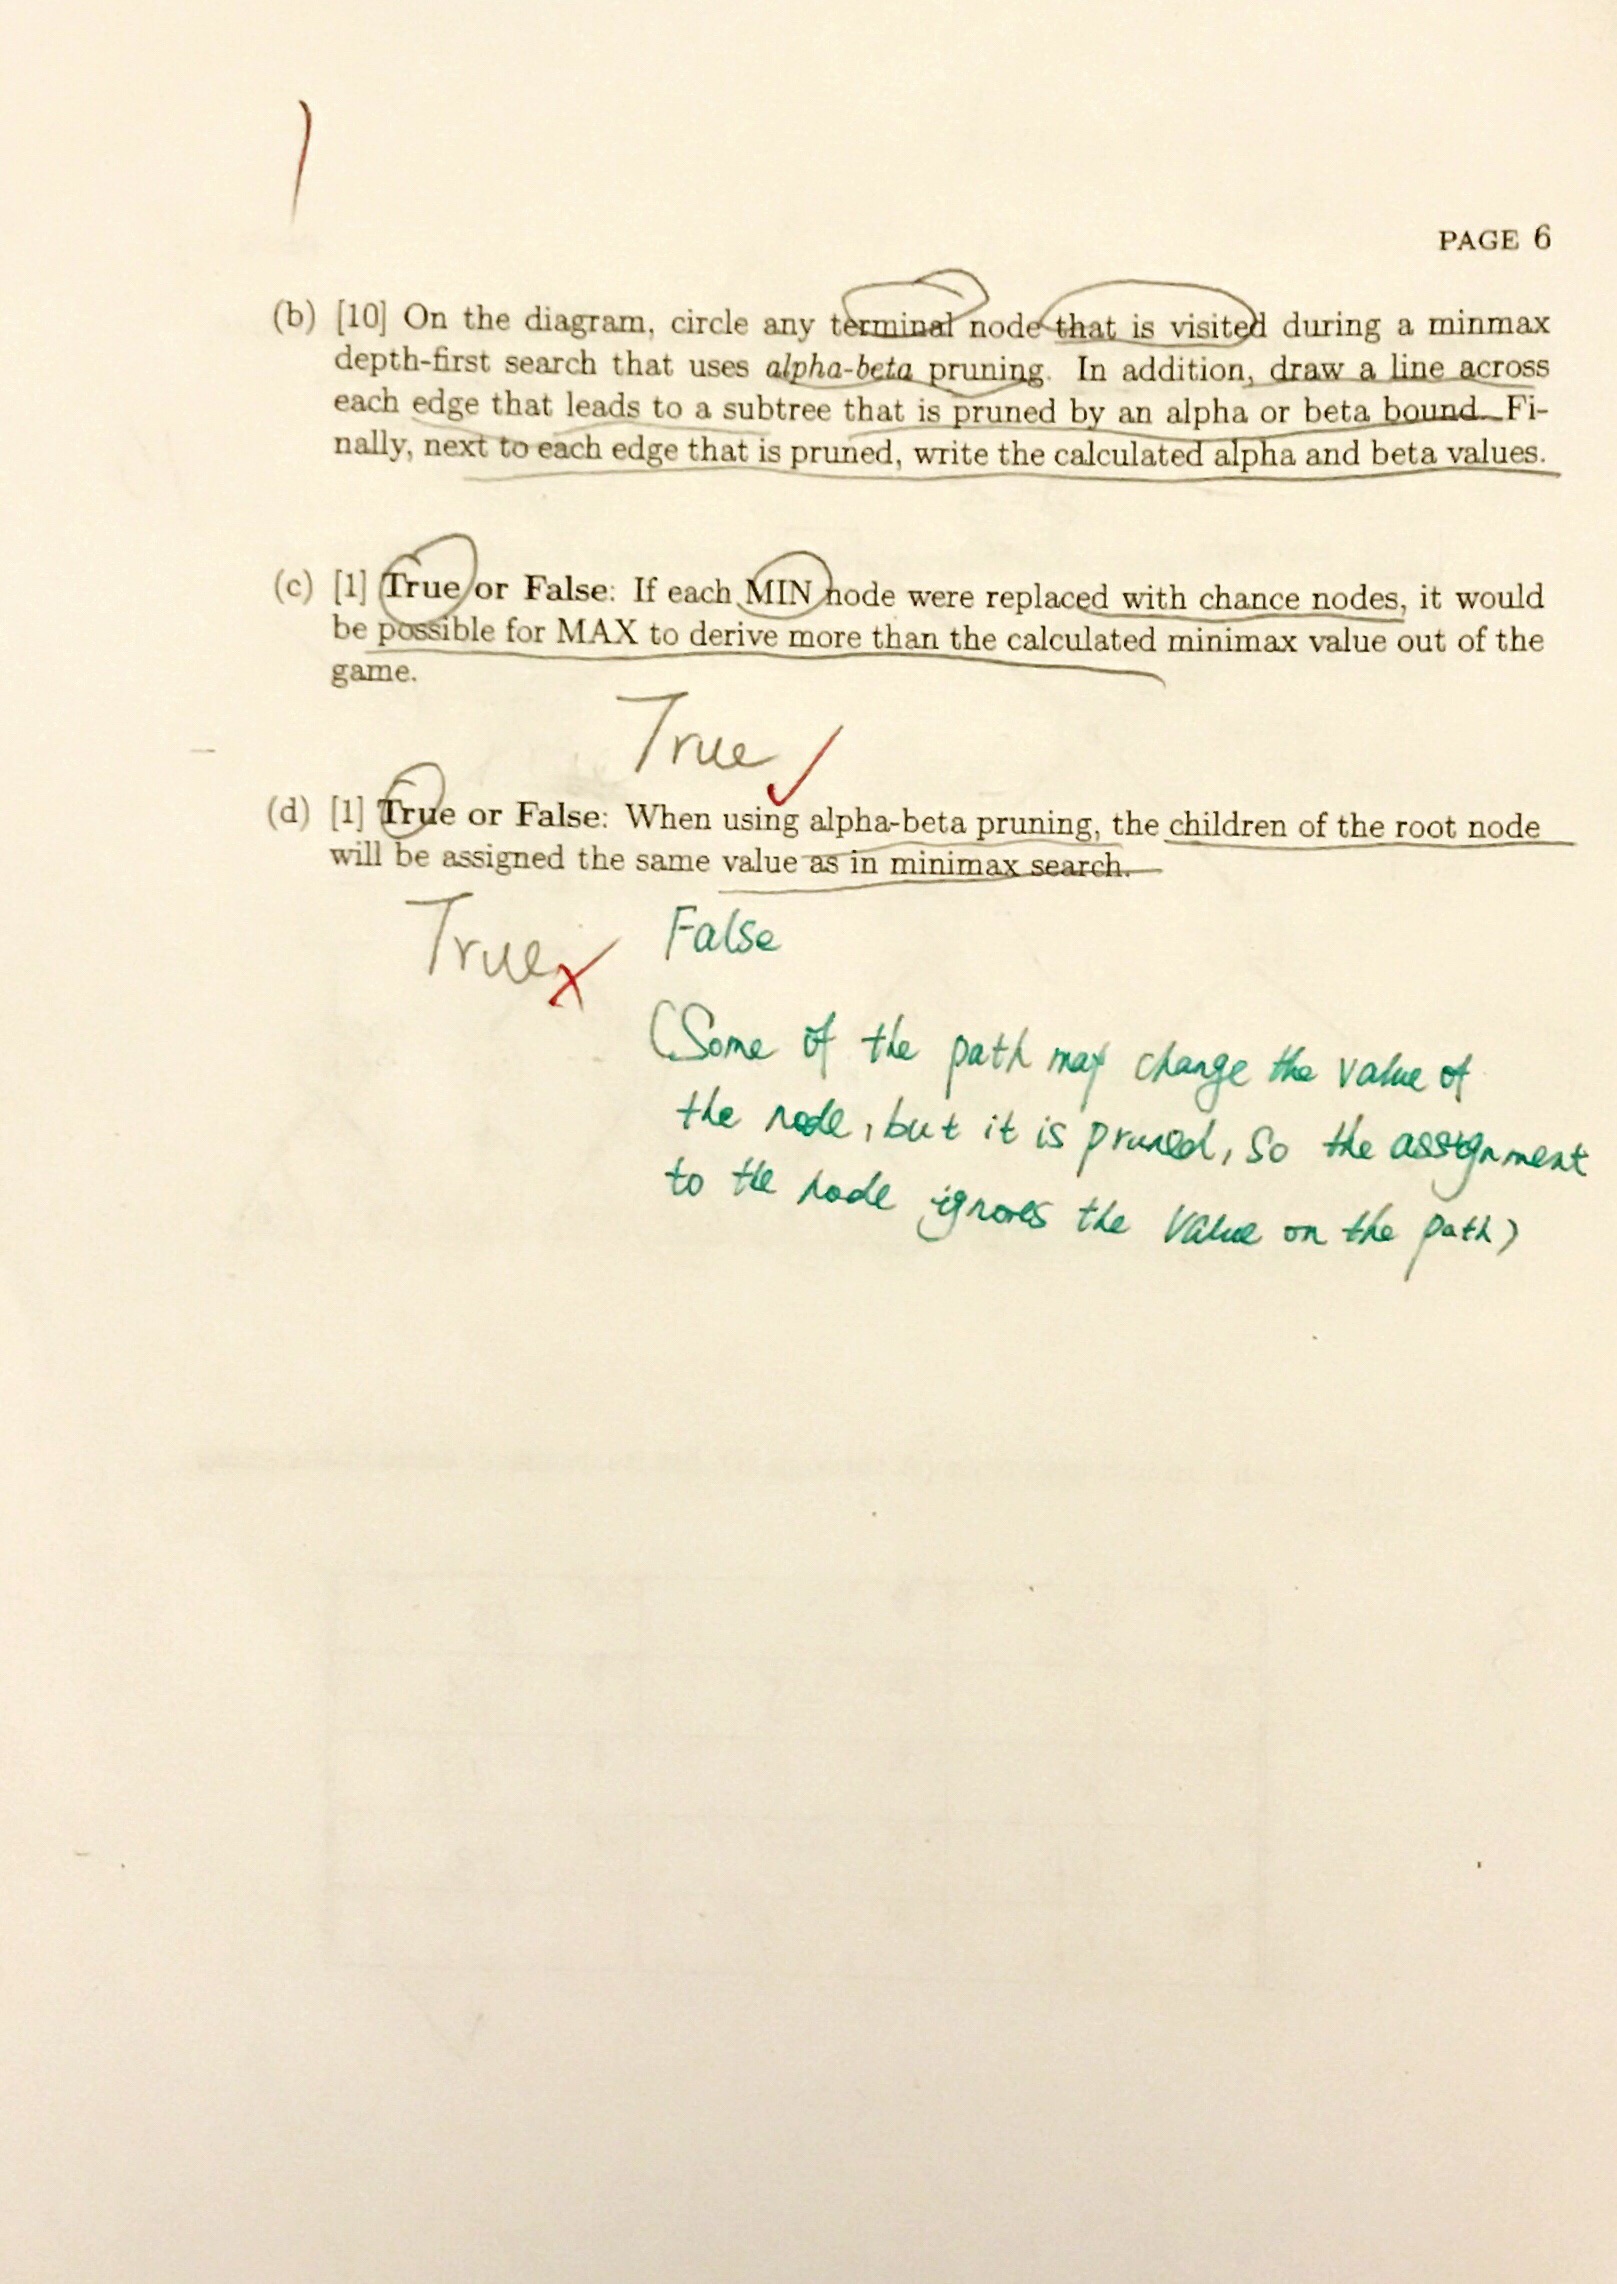 PAGE 6
(b) [10] On the diagram, circle any terminal node that is visited during a minmax
depth-first search that uses alpha-beta pruning. In addition, draw a line across
each edge that leads to a subtree that is pruned by an alpha or beta bound. Fi-
nally, next to each edge that is pruned, write the calculated alpha and beta values.
(c) [1] True or False: If each MIN node were replaced with chance nodes, it would
be possible for MAX to derive more than the calculated minimax value out of the
game.
True
(d) [1] True or False: When using alpha-beta pruning, the children of the root node
will be assigned the same value as in minimax search.
True
False
(Some of the path may change the value of
the node, but it is pruned, so the assignment
to the node ignores the value on the path)